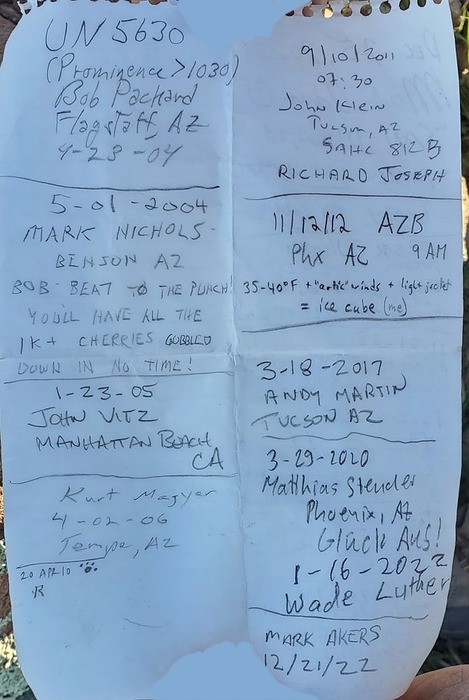 UN 5630
(Prominence >1030)
Bob Packard
Flagstaff, AZ
4-23-04
5-01-2004
MARK NICHOLS
BENSON AZ
BOB BEAT TO THE PUNCH!
YOU'LL HAVE ALL THE
1K+ CHERRIES GOBBLED
DOWN IN NO TIME!
1-23-05
JOHN VITZ
MANHATTAN BEACH
CA
Kurt Magyar
4-02-06
Tempe, AZ
20 APR 10
R
9/10/2011
07:30
John Klein
Tucson, AZ
SAHC 812 B
RICHARD JOSEPH
11/12/12 AZB
Phx AZ 9 AM
35-40°F + "artic" winds + light jacket
= ice cube (me)
3-18-2017
ANDY MARTIN
TUCSON AZ
3-29-2020
Matthias Stender
Phoenix, AZ
Glück Auf!
1-16-2022
Wade Luther
MARK AKERS
12/21/22